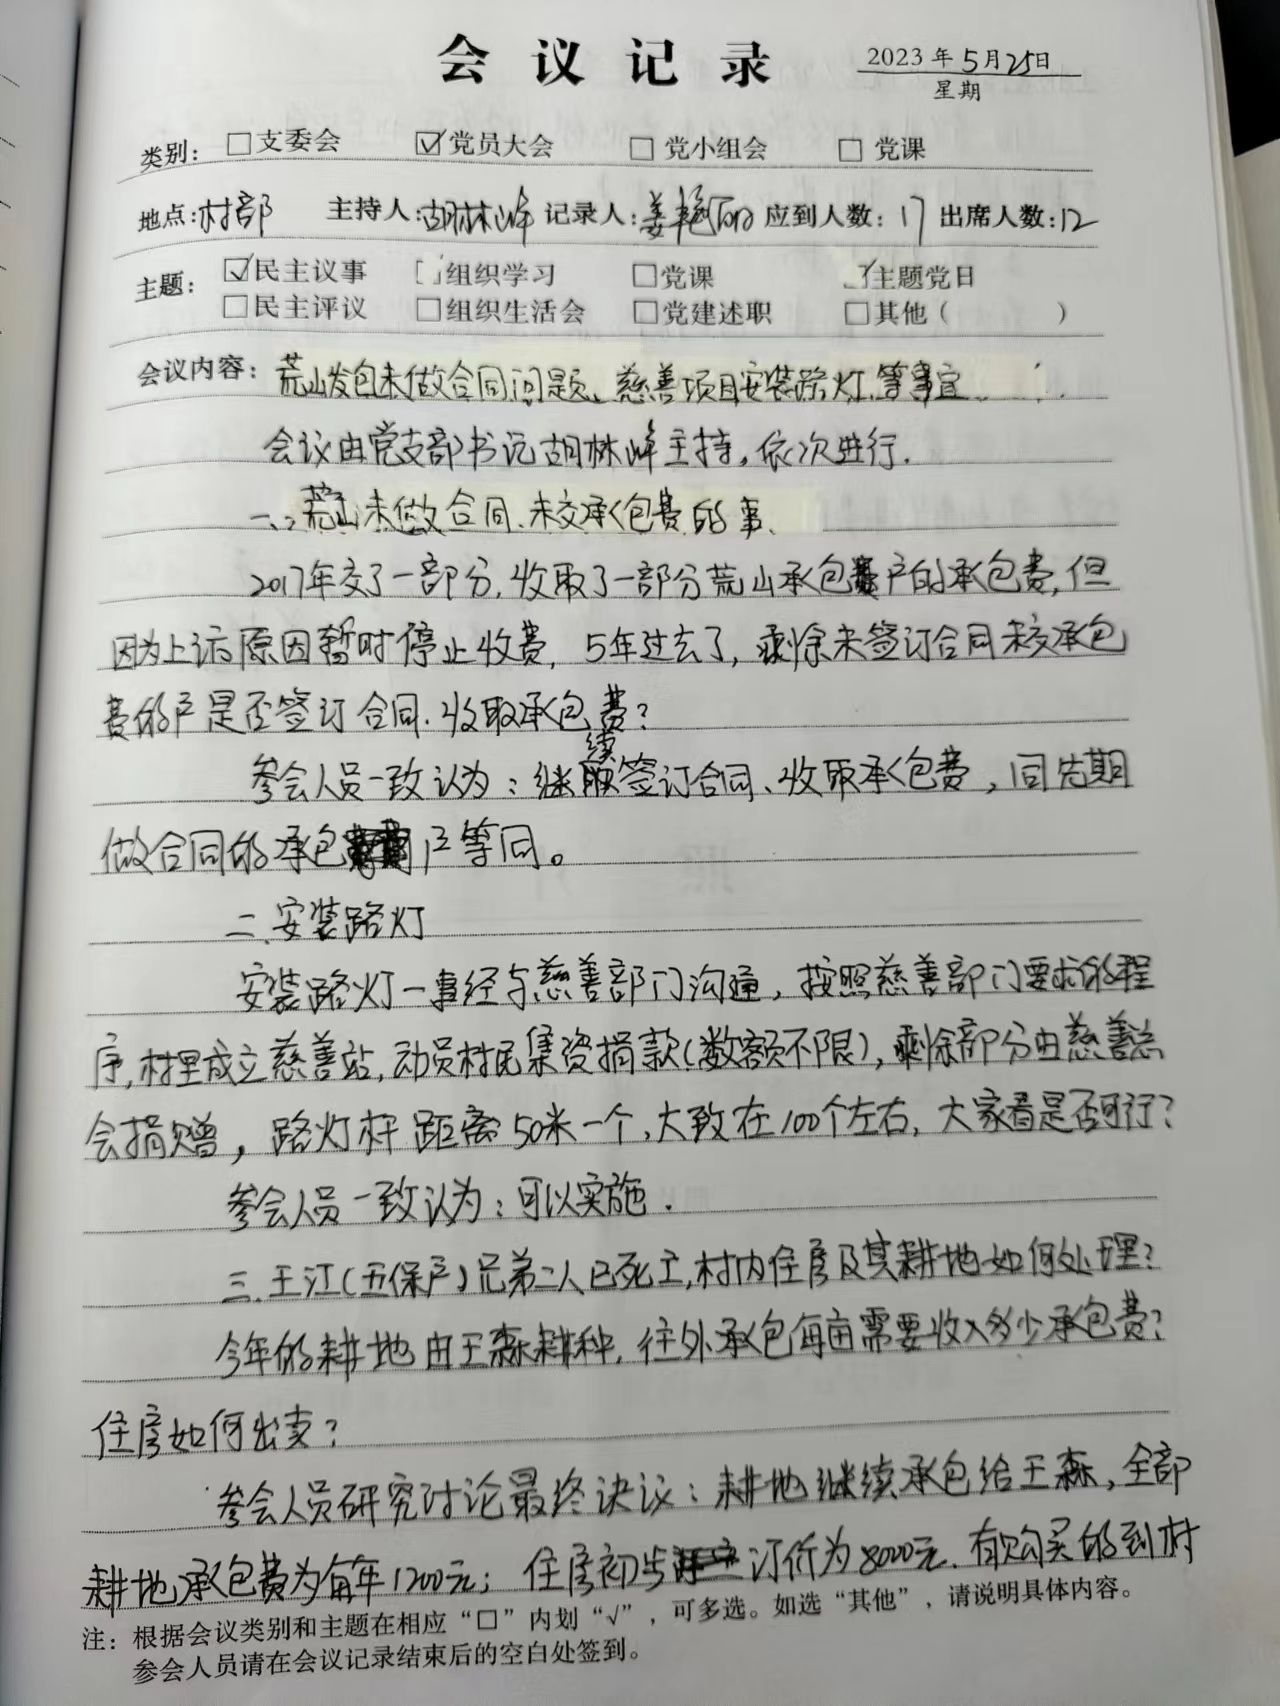 会议记录 2023年5月25日
星期
类别：□支委会 ☑党员大会 □党小组会 □党课
地点：村部 主持人：胡林峰 记录人：姜艳丽 应到人数：17 出席人数：12
主题：☑民主议事 □组织学习 □党课 ☑主题党日
□民主评议 □组织生活会 □党建述职 □其他（ ）
会议内容：荒山发包未做合同问题、慈善项目安装路灯、等事宜
会议由党支部书记胡林峰主持，依次进行.
一、荒山未做合同、未交承包费的事、
2017年交了一部分，收取了一部分荒山承包户的承包费，但
因为上访原因暂时停止收费，5年过去了，剩余未签订合同未交承包
费的户是否签订合同、收取承包费？
参会人员一致认为：继续签订合同、收取承包费，同先期
做合同的承包户等同。
二、安装路灯
安装路灯一事经与慈善部门沟通，按照慈善部门要求的程
序，村里成立慈善站，动员村民集资捐款（数额不限），剩余部分由慈善总
会捐赠，路灯杆距离50米一个，大致在100个左右，大家看是否可行？
参会人员一致认为：可以实施.
三、王江（五保户）兄弟二人已死亡，村内住房及其耕地如何处理？
今年的耕地由王森耕种，往外承包每亩需要收入多少承包费？
住房如何出卖？
参会人员研究讨论最终决议：耕地继续承包给王森，全部
耕地承包费为每年1200元；住房初步订价为8000元、有购买的到村
注：根据会议类别和主题在相应“□”内划“√”，可多选。如选“其他”，请说明具体内容。
参会人员请在会议记录结束后的空白处签到。